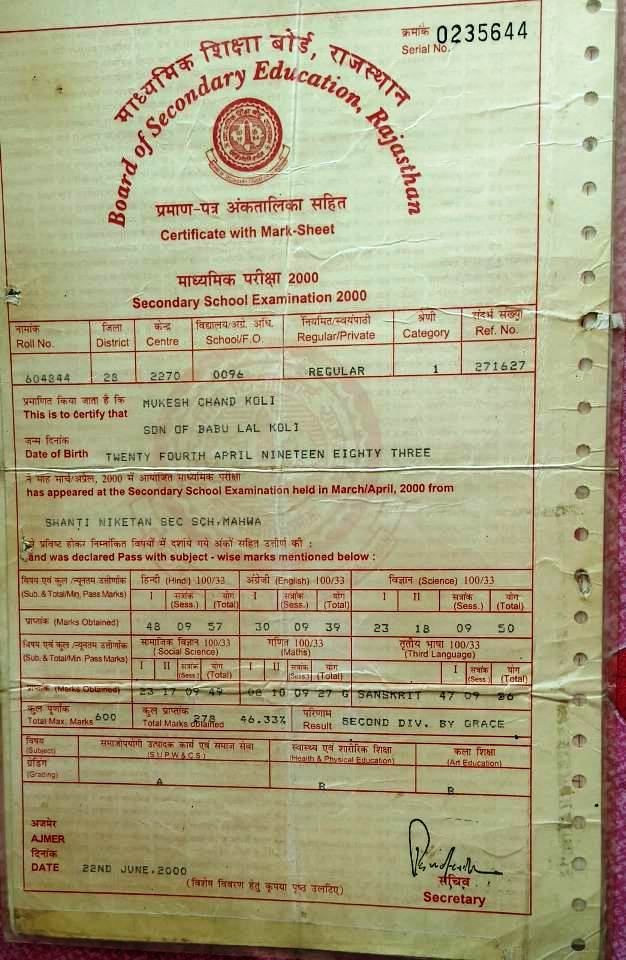 क्रमांक 0235644
Serial No.
माध्यमिक शिक्षा बोर्ड, राजस्थान
Board of Secondary Education, Rajasthan
प्रमाण-पत्र अंकतालिका सहित
Certificate with Mark-Sheet
माध्यमिक परीक्षा 2000
Secondary School Examination 2000
नामांक जिला केन्द्र विद्यालय/अग्रे. अधि. नियमित/स्वयंपाठी श्रेणी संदर्भ संख्या
Roll No. District Centre School/F.O. Regular/Private Category Ref. No.
604844 28 2270 0096 REGULAR 1 271627
प्रमाणित किया जाता है कि MUKESH CHAND KOLI
This is to certify that
SON OF BABU LAL KOLI
जन्म दिनांक
Date of Birth TWENTY FOURTH APRIL NINETEEN EIGHTY THREE
ने माह मार्च/अप्रेल, 2000 में आयोजित माध्यमिक परीक्षा
has appeared at the Secondary School Examination held in March/April, 2000 from
SHANTI NIKETAN SEC SCH,MAHWA
से प्रविष्ट होकर निम्नांकित विषयों में दर्शाये गये अंकों सहित उत्तीर्ण की :
and was declared Pass with subject - wise marks mentioned below :
विषय एवं कुल /न्यूनतम उत्तीर्णांक हिन्दी (Hindi) 100/33 अंग्रेजी (English) 100/33 विज्ञान (Science) 100/33
(Sub. & Total/Min. Pass Marks) I सत्रांक योग I सत्रांक योग I II सत्रांक योग
(Sess.) (Total) (Sess.) (Total) (Sess.) (Total)
प्राप्तांक (Marks Obtained) 48 09 57 30 09 39 23 18 09 50
विषय एवं कुल /न्यूनतम उत्तीर्णांक सामाजिक विज्ञान 100/33 गणित 100/33 तृतीय भाषा 100/33
(Sub. & Total/Min. Pass Marks) (Social Science) (Maths) (Third Language)
I II सत्रांक योग I II सत्रांक योग I सत्रांक योग
(Sess.) (Total) (Sess.) (Total) (Sess.) (Total)
प्राप्तांक (Marks Obtained) 23 17 09 49 08 10 09 27 G SANSKRIT 47 09 56
कुल पूर्णांक 600 कुल प्राप्तांक 278 46.33% परिणाम SECOND DIV. BY GRACE
Total Max. Marks Total Marks obtained Result
विषय समाजोपयोगी उत्पादक कार्य एवं समाज सेवा स्वास्थ्य एवं शारीरिक शिक्षा कला शिक्षा
(Subject) (S.U.P.W.& C.S.) (Health & Physical Education) (Art Education)
ग्रेडिंग
(Grading)
A B B
अजमेर
AJMER
दिनांक
DATE 22ND JUNE,2000
(विशेष विवरण हेतु कृपया पृष्ठ उलटिए)
सचिव
Secretary